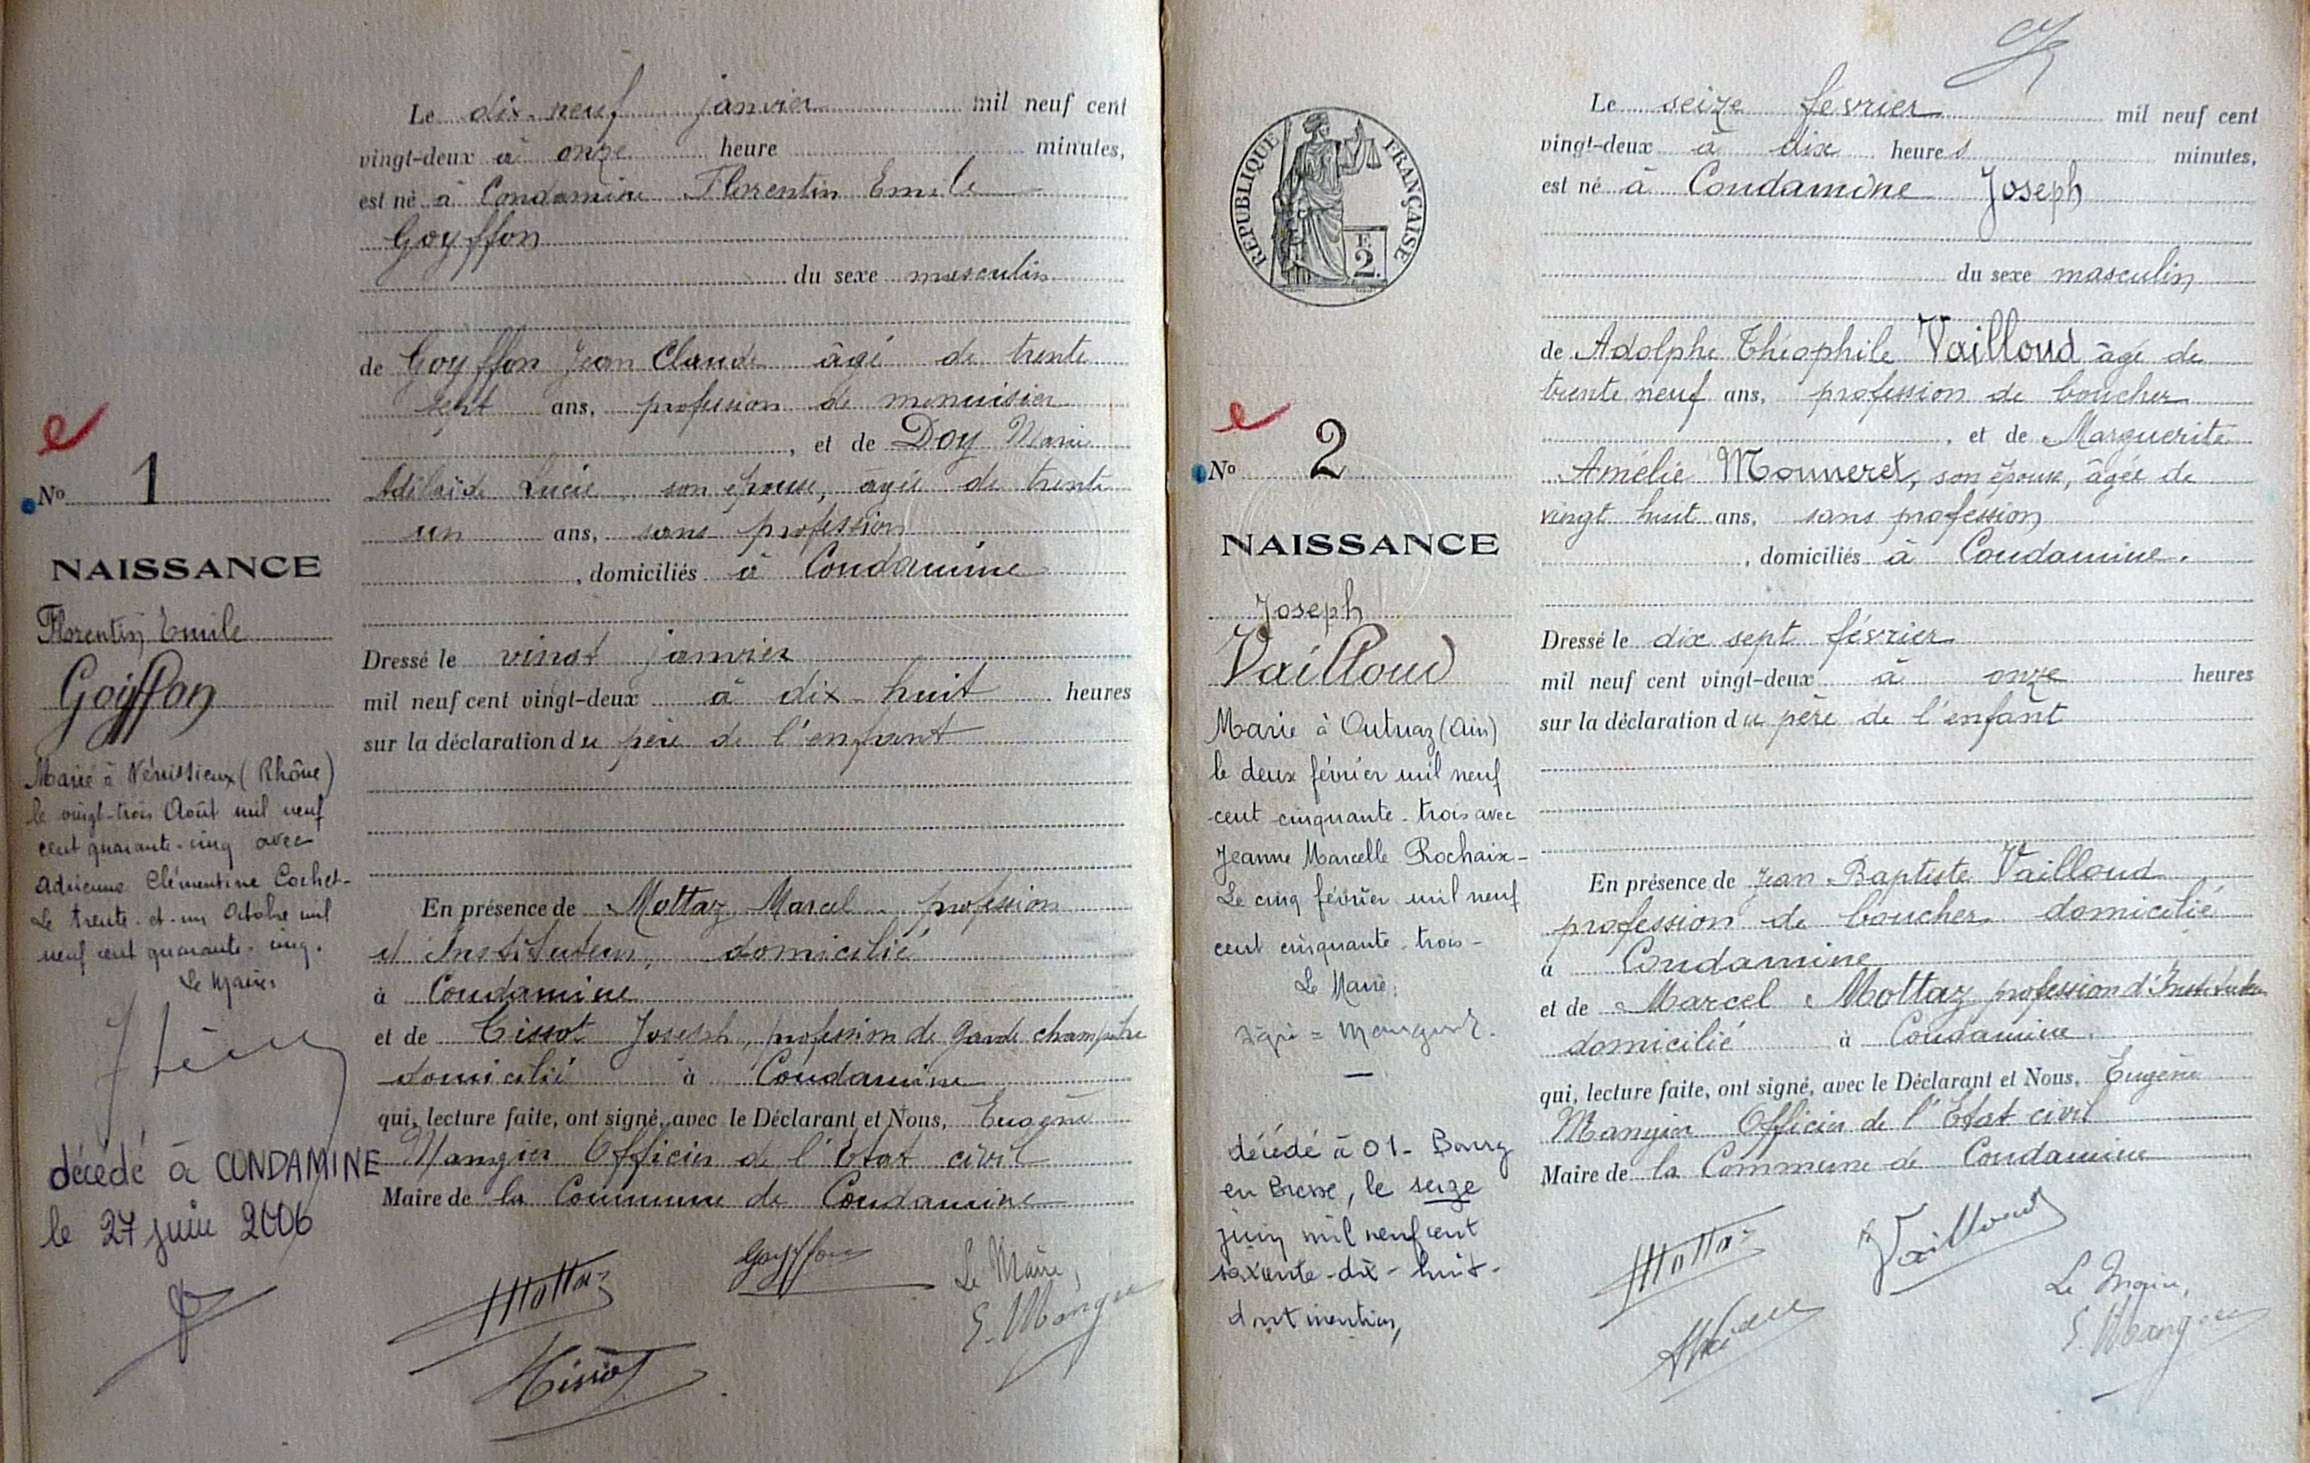 Le dix-neuf janvier mil neuf cent
vingt-deux à onze heure minutes,
est né à Condamine Florentin Emile
Goyffon
du sexe masculin
de Goyffon Jean Claude âgé de trente
sept ans, profession de menuisier
, et de Doy Marie
Adélaïde Lucie, son épouse, âgée de trente
un ans, sans profession
, domiciliés à Condamine
Dressé le vingt janvier
mil neuf cent vingt-deux à dix-huit heures
sur la déclaration du père de l'enfant
En présence de Mottaz Marcel profession
d'Instituteur, domicilié
à Condamine
et de Tissot Joseph, profession de garde champêtre
domicilié à Condamine
qui, lecture faite, ont signé, avec le Déclarant et Nous, Eugène
Mangier Officier de l'Etat civil
Maire de la Commune de Condamine
Mottaz
Goyffon
Le Maire,
E. Mangier
Tissot
No 1
NAISSANCE
Florentin Emile
Goyffon
Marié à Vénissieux (Rhône)
le vingt-trois Août mil neuf
cent quarante-cinq avec
Adrienne Clémentine Cochet-
Le trente-et-un Octobre mil
neuf cent quarante-cinq.
Le Maire
décédé à CONDAMINE
le 27 juin 2006
RÉPUBLIQUE FRANÇAISE
E
2.
No 2
NAISSANCE
Joseph
Vailloud
Marié à Outriaz (Ain)
le deux février mil neuf
cent cinquante-trois avec
Jeanne Marcelle Rochaix-
Le cinq février mil neuf
cent cinquante-trois-
Le Maire:
décédé à 01- Bourg
en Bresse, le seize
juin mil neuf cent
soixante-dix-huit-
dont mention,
Le seize février mil neuf cent
vingt-deux à dix heures minutes,
est né à Condamine Joseph
du sexe masculin
de Adolphe Théophile Vailloud âgé de
trente neuf ans, profession de boucher
, et de Marguerite
Amélie Monneret, son épouse, âgée de
vingt huit ans, sans profession
, domiciliés à Condamine.
Dressé le dix sept février
mil neuf cent vingt-deux à onze heures
sur la déclaration du père de l'enfant
En présence de Jean Baptiste Vailloud
profession de boucher domicilié
à Condamine
et de Marcel Mottaz profession d'Instituteur
domicilié à Condamine.
qui, lecture faite, ont signé, avec le Déclarant et Nous, Eugène
Mangier Officier de l'Etat civil
Maire de la Commune de Condamine
Mottaz
Vailloud
Le Maire,
E. Mangier